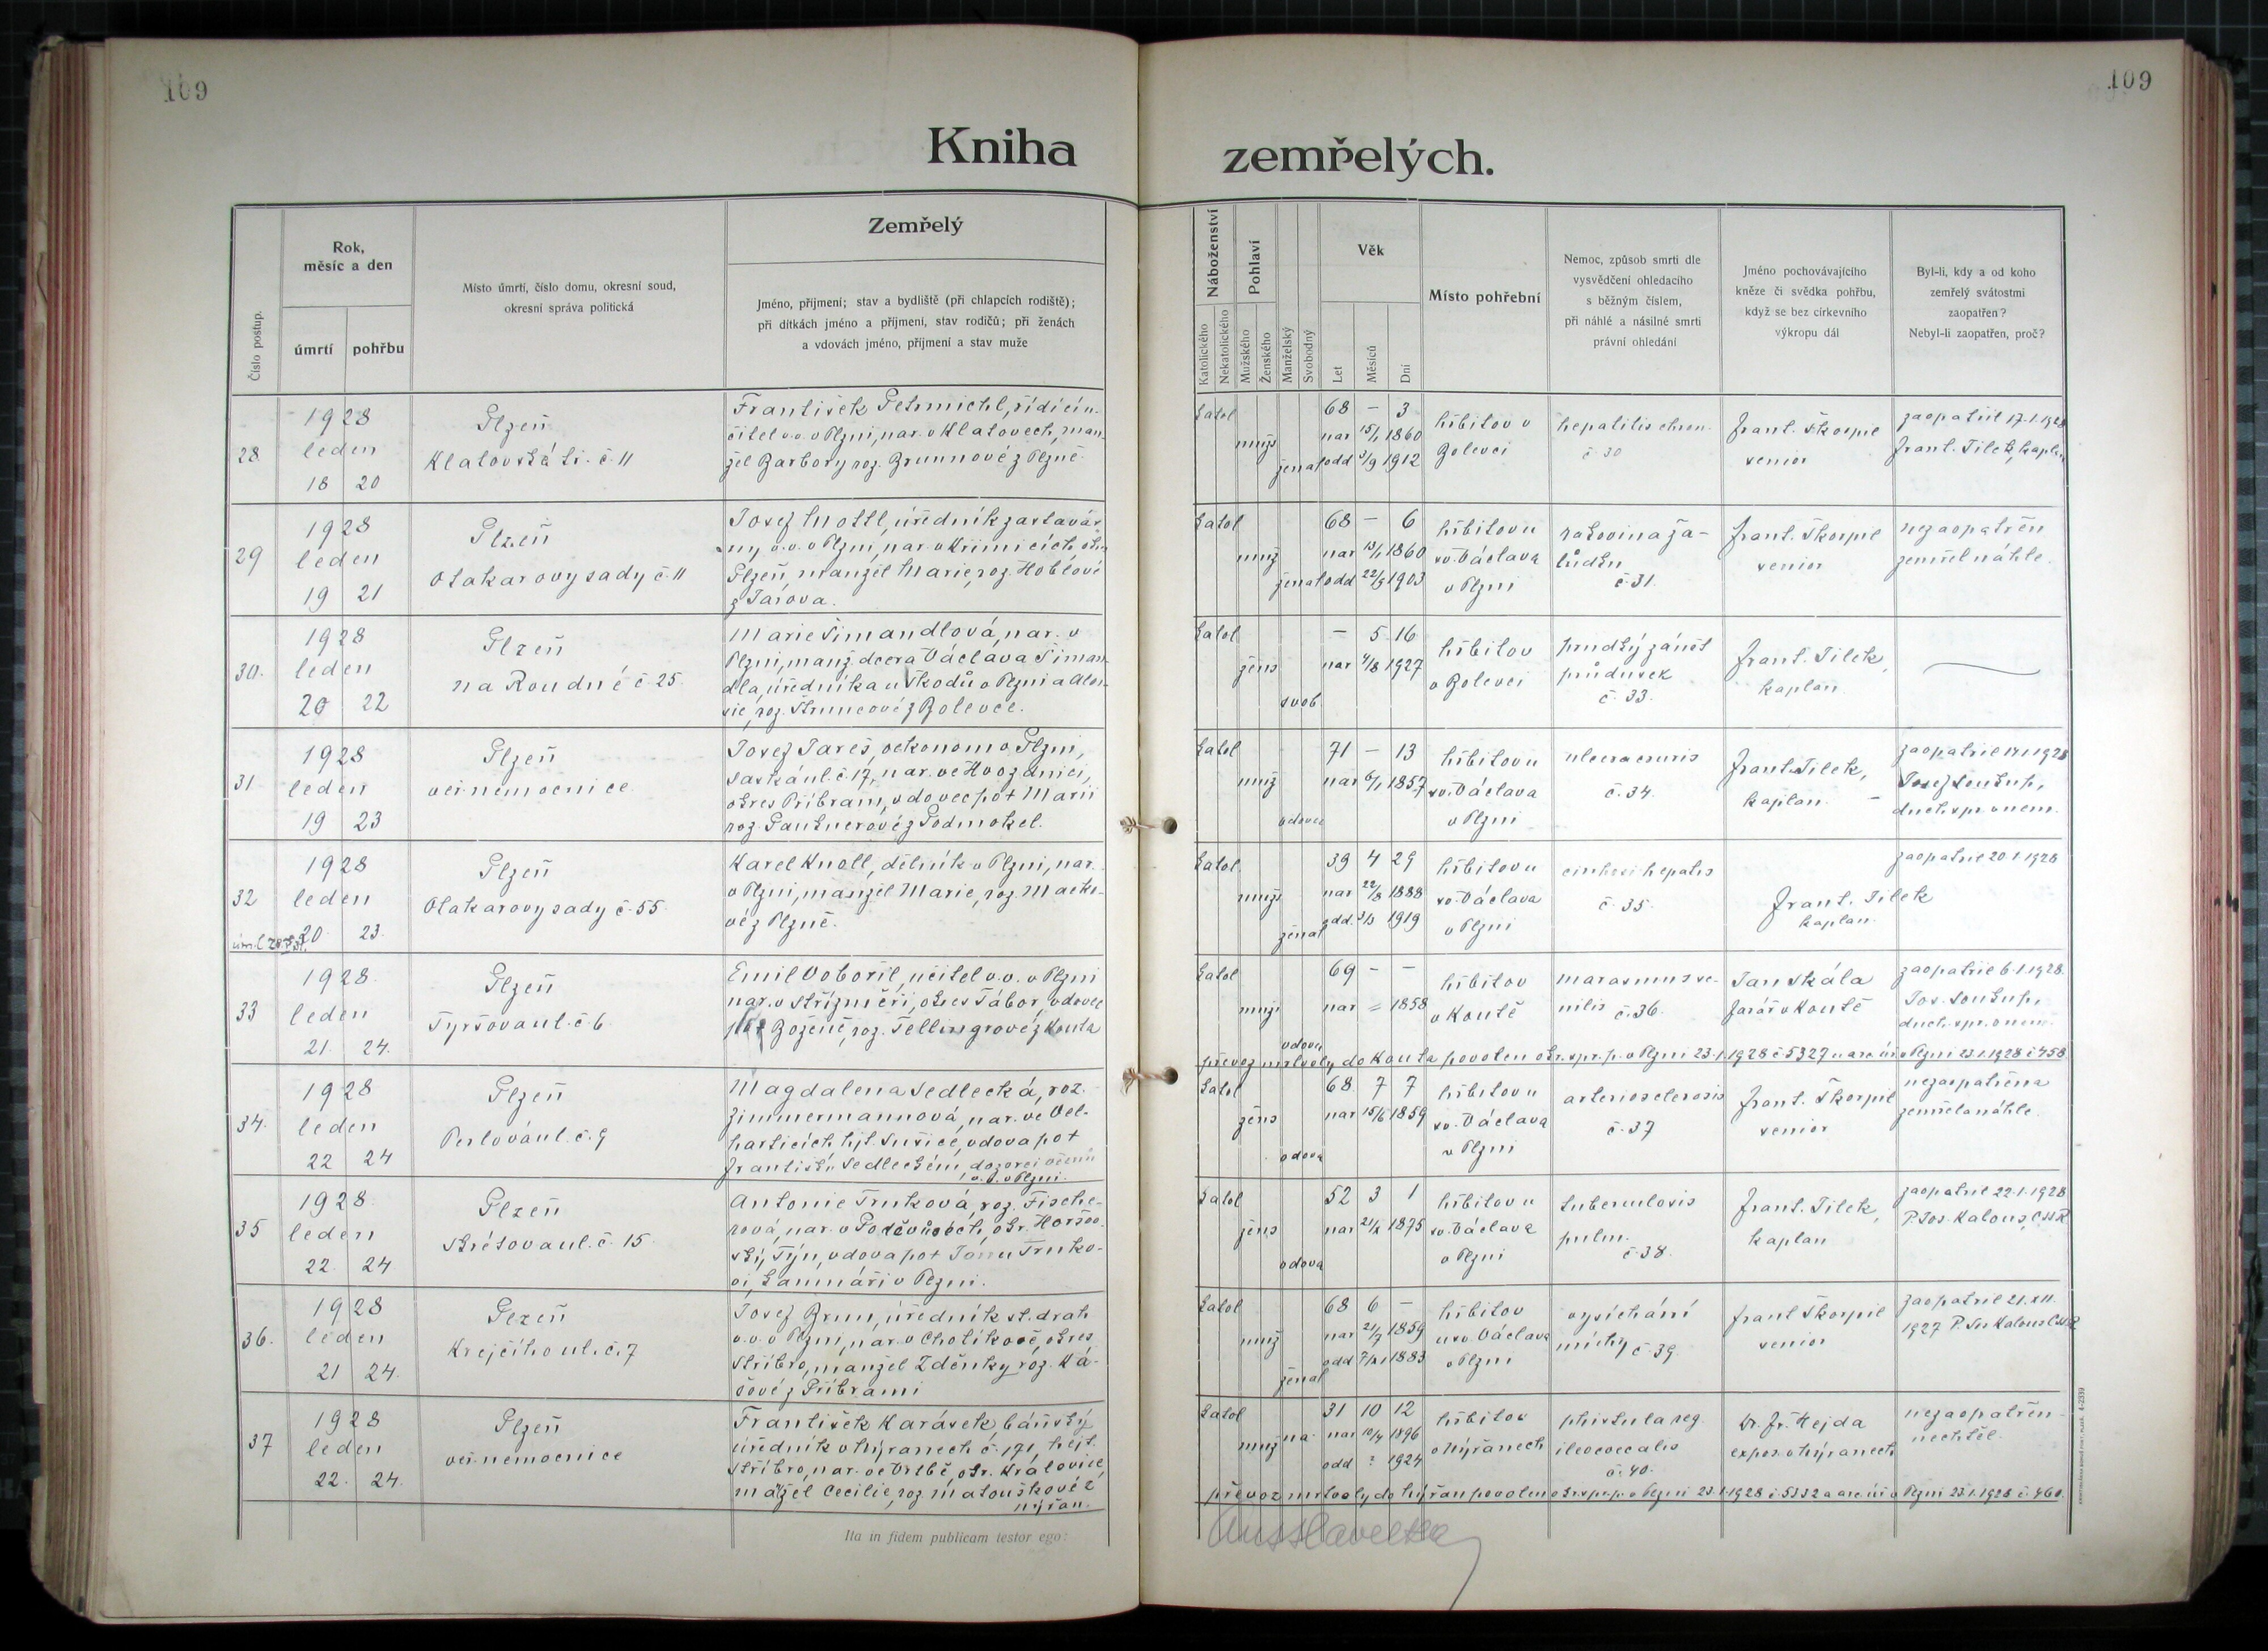 109
109
Kniha
zemřelých.
Číslo postup.
Rok,
měsíc a den
úmrtí
pohřbu
Místo úmrtí, číslo domu, okresní soud,
okresní správa politická
Zemřelý
Jméno, příjmení; stav a bydliště (při chlapcích rodiště);
při dítkách jméno a příjmení, stav rodičů; při ženách
a vdovách jméno, příjmení a stav muže
Náboženství
Katolického
Nekatolického
Pohlaví
Mužského
Ženského
Manželský
Svobodný
Věk
Let
Měsíců
Dní
Místo pohřební
Nemoc, způsob smrti dle
vysvědčení ohledacího
s běžným číslem,
při náhlé a násilné smrti
právní ohledání
Jméno pochovávajícího
kněze či svědka pohřbu,
když se bez církevního
výkropu dál
Byl-li, kdy a od koho
zemřelý svátostmi
zaopatřen?
Nebyl-li zaopatřen, proč?
28
1928
leden
18 20
Plzeň
Klatovská tř. č. 11
František Petrmichl, řídící u-
čitel v.v. v Plzni, nar. v Klatovech, man-
žel Barbory roz. Brunnové z Plzně.
katol
muž
ženat
68 – 3
nar 15/1 1860
odd 3/9 1912
hřbitov v
Bolevci
hepatitis chron.
č. 30
Frant. Škorpil
senior
zaopatřil 17.1.1928
Frant. Tilek, kaplan
29
1928
leden
19 21
Plzeň
Otakarovy sady č. 11
Josef Mottl, úředník zastavár-
ny v.v. v Plzni, nar. v Křimicích okr.
Plzeň, manžel Marie, roz. Hoblové
z Tarova.
katol
muž
ženat
68 – 6
nar 13/1 1860
odd 22/8 1903
hřbitov u
sv. Václava
v Plzni
rakovina ža-
lůdku
č. 31.
Frant. Škorpil
senior
nezaopatřen
zemřel náhle.
30.
1928
leden
20 22
Plzeň
na Roudné č. 25.
Marie Šimandlová, nar. v
Plzni, manž. dcera Václava Šiman-
dla, úředníka u Škodů v Plzni a Aloi-
sie, roz. Štruncové z Bolevce.
katol
žens
svob.
– 5 16
nar 4/8 1927
hřbitov
v Bolevci
prudký zánět
průdušek
č. 33.
Frant. Tilek,
kaplan.
31.
1928
leden
19 23
Plzeň
veř. nemocnice
Josef Jareš, oekonom v Plzni,
Saská ul. č. 17, nar. ve Hvozdnici,
okres Příbram, vdovec po † Marii
roz. Pauknerové z Podmokel.
katol
muž
vdovec
71 – 13
nar 6/1 1857
hřbitov u
sv. Václava
v Plzni
ulcera cruris
č. 34.
Frant. Tilek,
kaplan. –
zaopatřil 17.1.1928
Josef Soukup,
duch. spr. v nem.
32
1928
leden
20. 23.
Plzeň
Otakarovy sady č. 55.
Karel Knoll, dělník v Plzni, nar.
v Plzni, manžel Marie, roz.
vé z Plzně.
katol
muž
ženat
39 4 29
nar 22/8 1888
odd. 1919
hřbitov u
sv. Václava
v Plzni
cirrhosi hepatis
č. 35.
Frant. Tilek
kaplan.
zaopatřil 20.1.1928
33
1928.
leden
21. 24.
Plzeň
Tyršova ul. č. 6
Emil Vobořil, učitel v.v. v Plzni
nar. v Střizměři, okres Tábor, vdovec
po † Boženě, roz. Tellingrové z Kouta
katol
muž
vdovec
69 – –
nar = 1858
hřbitov
v Koutě
marasmus se-
nilis č. 36.
Jan Skála
farář v Koutě
zaopatřil 6.1.1928.
Jos. Soukup,
duch. spr. v nem.
převoz mrtvoly do Kouta povolen okr. spr. p. v Plzni 23.1.1928 č. 5327 v Plzni 23.1.1928 č. 458
34.
1928
leden
22 24
Plzeň
Perlová ul. č. 9
Magdalena Sedlecká, roz.
Zimmermannová, nar. ve Vel-
harticích, hjt. Sušice, vdova po †
Františku Sedleckém, dozorci věznů
v.v. v Plzni.
katol
žens
vdova
68 7 7
nar 15/6 1859
hřbitov u
sv. Václava
v Plzni
arteriosclerosis
č. 37
Frant. Škorpil
senior
nezaopatřena
zemřela náhle.
35
1928.
leden
22. 24
Plzeň
Skrétova ul. č. 15.
Antonie Trnková, roz. Fische-
rová, nar. v, okr. Horšov-
ský Týn, vdova po † Janu Trnko-
vi, v Plzni.
katol
žens
vdova
52 3 1
nar 1875
hřbitov u
sv. Václava
v Plzni
tuberculosis
pulm.
č. 38.
Frant. Tilek,
kaplan
zaopatřil 22.1.1928
P. Jos. Kalous, CSsR
36.
1928
leden
21 24.
Plzeň
Krejčího ul. č. 7
Josef Brun, úředník st. drah
v.v. v Plzni, nar. v Chotíkově, okres
Stříbro, manžel Zděnky roz. Ká-
šové z Příbrami
katol
muž
ženat
68 6 –
nar 21/7 1859
odd 1883
hřbitov
u sv. Václava
v Plzni
vysíchání
míchy č. 39.
Frant Škorpil
senior
zaopatřil 21. XII.
1927 P. Jos Kalous CSsR
37
1928
leden
22. 24.
Plzeň
veř. nemocnice
František Karásek, báňský
úředník v Nýřanech č. 171, hejt.
Stříbro, nar. ve Vrtbě, okr. Kralovice,
mažel Cecilie, roz Matouškové z
Nýřan.
katol
muž
31 10 12
nar 10/4 1896
odd ? 1924
hřbitov
v Nýřanech
phistula reg.
ileocoecalis
č. 40.
Dr. Fr. Hejda
expos. v Nýřanech
nezaopatřen –
nechtěl.
převoz mrtvoly do Nýřan povolen okr. spr. p. v Plzni 23.1.1928 č. 5332 a v Plzni 23.1.1928 č. 460.
Ita in fidem publicam testor ego: